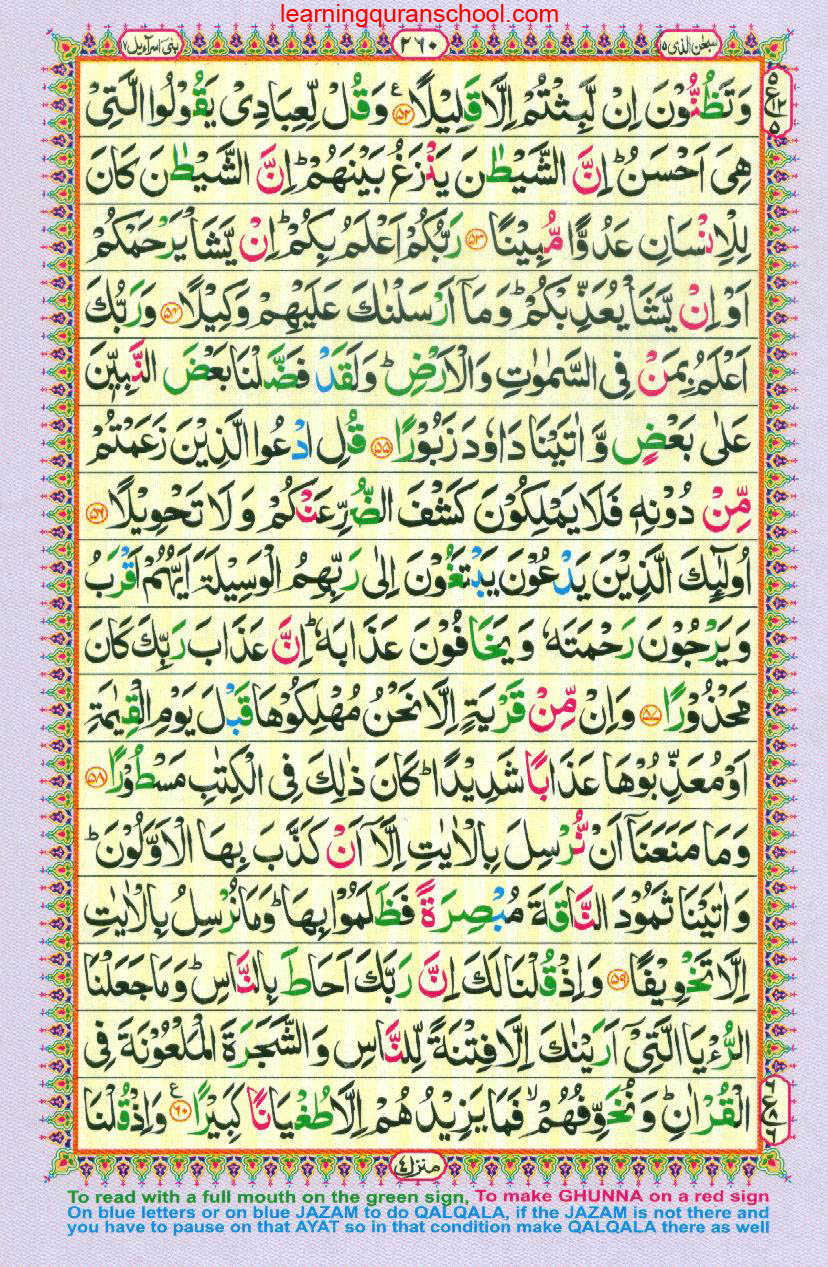 learningquranschool.com
سبحٰن الذی ۱۵
۲۶۰
بنی اسرآءیل ۱۷
وَتَظُنُّوْنَ اِنْ لَّبِثْتُمْ اِلَّا قَلِيْلًا ﴿۵۲﴾ ع وَقُلْ لِّعِبَادِىْ يَقُوْلُوا الَّتِىْ
هِىَ اَحْسَنُ ؕ اِنَّ الشَّيْطٰنَ يَنْزَغُ بَيْنَهُمْ ؕ اِنَّ الشَّيْطٰنَ كَانَ
لِلْاِنْسَانِ عَدُوًّا مُّبِيْنًا ﴿۵۳﴾ رَبُّكُمْ اَعْلَمُ بِكُمْ ؕ اِنْ يَّشَاْ يَرْحَمْكُمْ
اَوْ اِنْ يَّشَاْ يُعَذِّبْكُمْ ؕ وَمَاۤ اَرْسَلْنٰكَ عَلَيْهِمْ وَكِيْلًا ﴿۵۴﴾ وَرَبُّكَ
اَعْلَمُ بِمَنْ فِى السَّمٰوٰتِ وَالْاَرْضِ ؕ وَلَقَدْ فَضَّلْنَا بَعْضَ النَّبِيّٖنَ
عَلٰى بَعْضٍ وَّاٰتَيْنَا دَاوٗدَ زَبُوْرًا ﴿۵۵﴾ قُلِ ادْعُوا الَّذِيْنَ زَعَمْتُمْ
مِّنْ دُوْنِهٖ فَلَا يَمْلِكُوْنَ كَشْفَ الضُّرِّ عَنْكُمْ وَلَا تَحْوِيْلًا ﴿۵۶﴾
اُولٰٓئِكَ الَّذِيْنَ يَدْعُوْنَ يَبْتَغُوْنَ اِلٰى رَبِّهِمُ الْوَسِيْلَةَ اَيُّهُمْ اَقْرَبُ
وَيَرْجُوْنَ رَحْمَتَهٗ وَيَخَافُوْنَ عَذَابَهٗ ؕ اِنَّ عَذَابَ رَبِّكَ كَانَ
مَحْذُوْرًا ﴿۵۷﴾ وَاِنْ مِّنْ قَرْيَةٍ اِلَّا نَحْنُ مُهْلِكُوْهَا قَبْلَ يَوْمِ الْقِيٰمَةِ
اَوْ مُعَذِّبُوْهَا عَذَابًا شَدِيْدًا ؕ كَانَ ذٰلِكَ فِى الْكِتٰبِ مَسْطُوْرًا ﴿۵۸﴾
وَمَا مَنَعَنَاۤ اَنْ نُّرْسِلَ بِالْاٰيٰتِ اِلَّاۤ اَنْ كَذَّبَ بِهَا الْاَوَّلُوْنَ ؕ
وَاٰتَيْنَا ثَمُوْدَ النَّاقَةَ مُبْصِرَةً فَظَلَمُوْا بِهَا ؕ وَمَا نُرْسِلُ بِالْاٰيٰتِ
اِلَّا تَخْوِيْفًا ﴿۵۹﴾ وَاِذْ قُلْنَا لَكَ اِنَّ رَبَّكَ اَحَاطَ بِالنَّاسِ ؕ وَمَا جَعَلْنَا
الرُّءْيَا الَّتِىْۤ اَرَيْنٰكَ اِلَّا فِتْنَةً لِّلنَّاسِ وَالشَّجَرَةَ الْمَلْعُوْنَةَ فِى
الْقُرْاٰنِ ؕ وَنُخَوِّفُهُمْ ۙ فَمَا يَزِيْدُهُمْ اِلَّا طُغْيَانًا كَبِيْرًا ﴿۶۰﴾ ع وَاِذْ قُلْنَا
منزل ۴
To read with a full mouth on the green sign, To make GHUNNA on a red sign
On blue letters or on blue JAZAM to do QALQALA, if the JAZAM is not there and
you have to pause on that AYAT so in that condition make QALQALA there as well